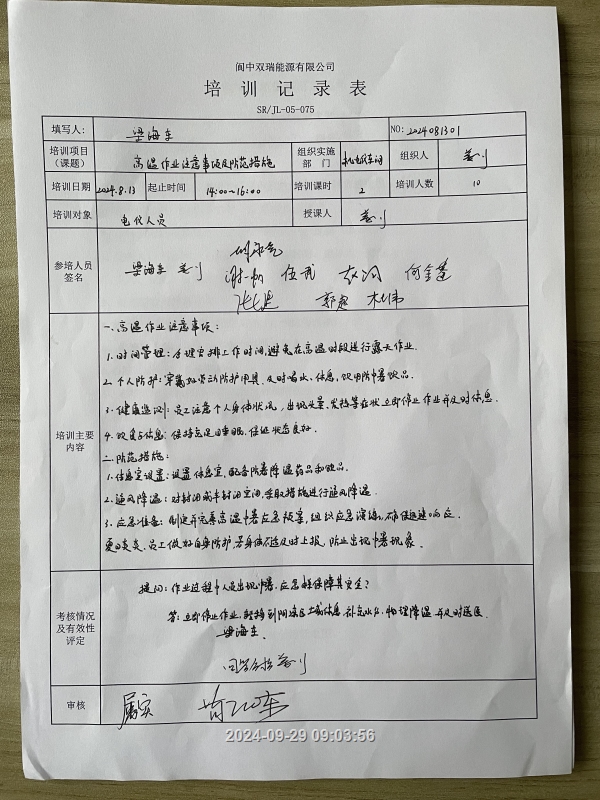 阆中双瑞能源有限公司
培训记录表
SR/JL-05-075
填写人： 梁海东 NO: 2024081301
培训项目（课题） 高温作业注意事项及防范措施 组织实施部门 机电仪车间 组织人 姜川
培训日期 2024.8.13 起止时间 14:00~16:00 培训课时 2 培训人数 10
培训对象 电仪人员 授课人 姜川
参培人员签名
梁海东 姜川 伍武 何金莲
培训主要内容
一、高温作业注意事项：
1. 时间管理：合理安排工作时间，避免在高温时段进行露天作业。
2. 个人防护：穿戴好劳动防护用具，及时喝水、休息，饮用防中暑饮品。
3. 健康监测：员工注意个人身体状况，出现头晕、发热等症状立即停止作业并及时休息。
4. 饮食与休息：保持充足的睡眠，保证状态良好。
二、防范措施：
1. 休息室设置：设置休息室，配备防暑降温药品和饮品。
2. 通风降温：对封闭或半封闭空间，采取措施进行通风降温。
3. 应急准备：制定并完善高温中暑应急预案，组织应急演练，确保迅速响应。
夏日炎炎、员工做好自身防护，若身体不适及时上报，防止出现中暑现象。
考核情况及有效性评定
提问：作业过程中人员出现中暑，应怎样保障其安全？
答：立即停止作业，转移到阴凉区域休息，补充水分，物理降温并及时送医。
梁海东
姜川
审核 属实
2024-09-29 09:03:56